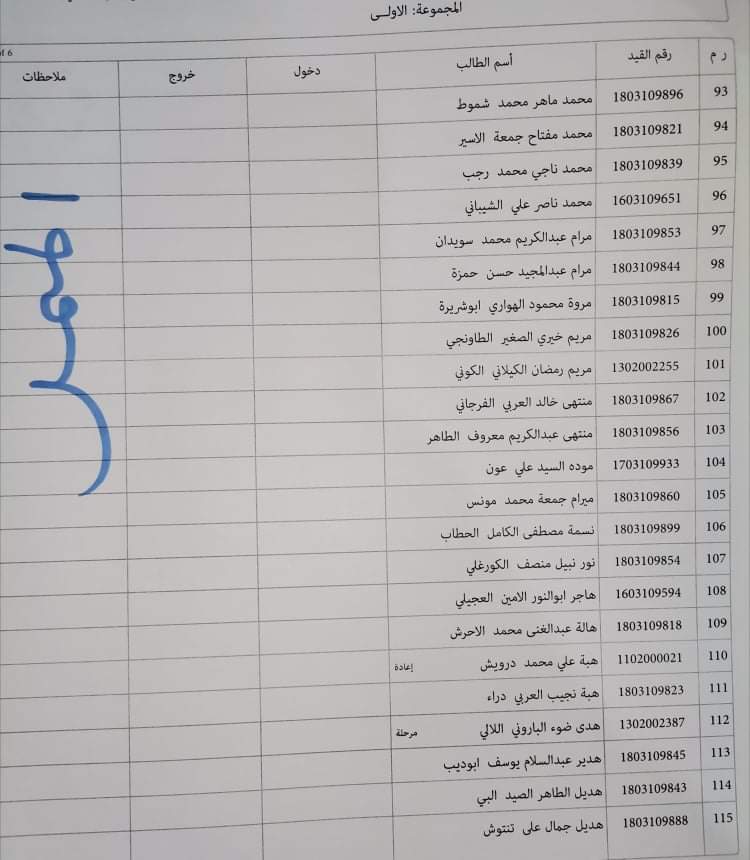 المجموعة: الاولـى
of 6
ر م رقم القيد أسم الطالب دخول خروج ملاحظات
93 1803109896 محمد ماهر محمد شموط
94 1803109821 محمد مفتاح جمعة الاسير
95 1803109839 محمد ناجي محمد رجب
96 1603109651 محمد ناصر علي الشيباني
97 1803109853 مرام عبدالكريم محمد سويدان
98 1803109844 مرام عبدالمجيد حسن حمزة
99 1803109815 مروة محمود الهواري ابوشريرة
100 1803109826 مريم خيري الصغير الطاونجي
101 1302002255 مريم رمضان الكيلاني الكوني
102 1803109867 منتهى خالد العربي الفرجاني
103 1803109856 منتهى عبدالكريم معروف الطاهر
104 1703109933 موده السيد علي عون
105 1803109860 ميرام جمعة محمد مونس
106 1803109899 نسمة مصطفى الكامل الحطاب
107 1803109854 نور نبيل منصف الكورغلي
108 1603109594 هاجر ابوالنور الامين العجيلي
109 1803109818 هالة عبدالغنى محمد الاحرش
110 1102000021 هبة علي محمد درويش إعادة
111 1803109823 هبة نجيب العربي دراء
112 1302002387 هدى ضوء الباروني اللالي مرحلة
113 1803109845 هدير عبدالسلام يوسف ابوديب
114 1803109843 هديل الطاهر الصيد البي
115 1803109888 هديل جمال على تنتوش